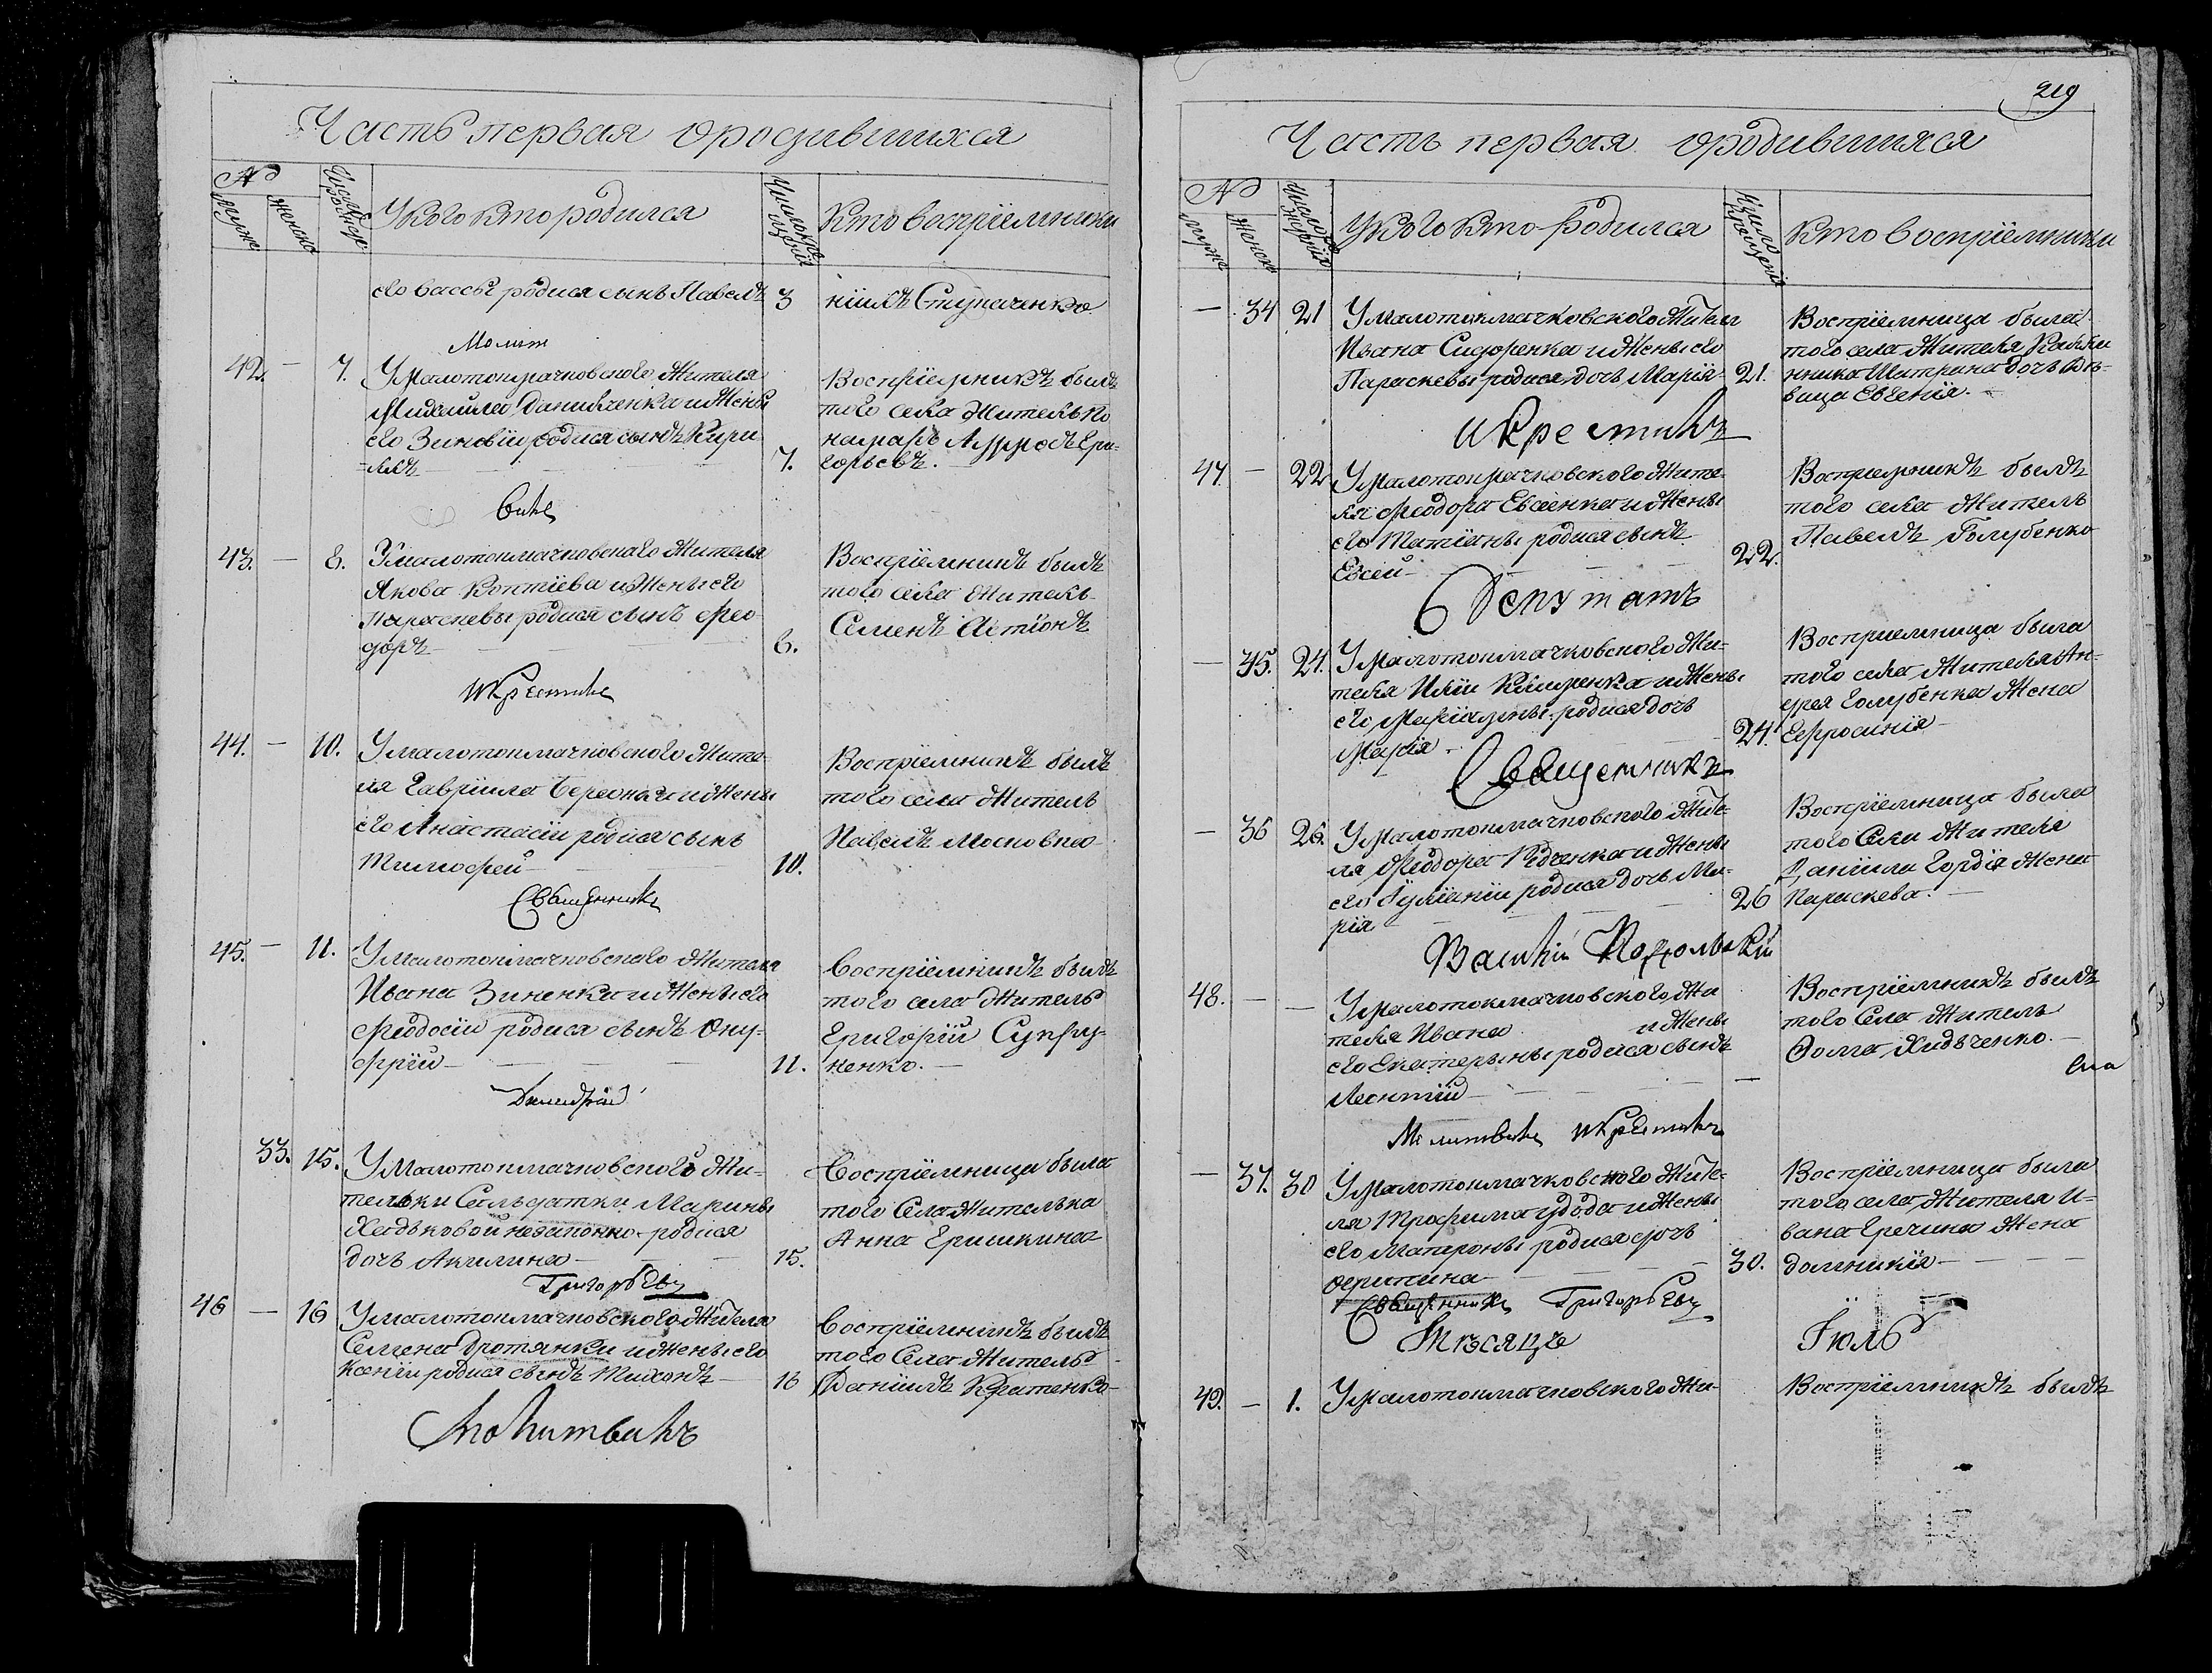 Часть первая о родившихся
№
Мужес
Женска
Число рожде
У кого кто родился
Число кре щенія
Кто воспріемники
его Вассы родися сынъ Павелъ 3 ніилъ Ступаченко
Молит
42. — 7. У Малотокмачковского жителя
Михаила Данильченка и жены
его Зиновіи родися сынъ Кири
=ллъ — 7.
Воспріемникъ былъ
того села житель По
номарь Григ
горьевъ.
викъ
43. — 6. У малотокмачковского жителя
Якова Коптіева и жены его
Параскевы родися сынъ Фео
доръ — 6.
Воспріемникъ былъ
того села житель
Семенъ
и крестилъ
44. — 10. У малотокмачковского жите
ля Гавріила и жены
его Анастасіи родися сынъ
Тимофей — 10.
Воспріемникъ былъ
того села житель
Павелъ Московко
Священникъ
45. — 11. У малотокмачковского жителя
Ивана Зиненка и жены его
Феодосіи родися сынъ Ону-
фрій — 11.
Воспріемникъ былъ
того села житель
Григорій Супру-
ненко.
Димитрій
33. 15. У Малотокмачковского жи-
тельки Сальдатки Марины
Хадьковой незаконно родися
дочь Акилина — 15.
Воспріемница была
того Села жителька
Анна Гришкина
Григорьевъ
46 — 16 У малотокмачковского жителя
Семена Протянки и жены его
Ксеніи родися сынъ Тихонъ — 16
Воспріемникъ былъ
того Села житель
Даніилъ
Молитвилъ
219
Часть первая о родившихся
№
Мужес
Женск
Число рожденія
У кого кто родился
Число крещенія
Кто воспріемники
— 34 21 У малотокмачковского жителя
Ивана Сидоренка и жены его
Параскевы родися дочь Марія 21.
Воспріемница была
того села жителя
Шитрина дочь Дѣ-
вица Евгенія. —
и крестилъ
47. — 22 У малотокмачковского жите
ля Феодора Евсѣенка и жены
его Татіаны родися сынъ
Евсей — 22.
Воспріемникъ былъ
того села житель
Павелъ Голубенко
Депутатъ
— 35. 24. У малотокмачковского жи-
теля Иліи и жены
его Маріамны родися дочь
Марія — 24.
Воспріемница была
того села жителя Ан-
дрея Голубенка жена
Ефросинія —
Священникъ
— 36 26. У малотокмачковского жите-
ля Феодора Редченка и жены
его Іуліаніи родися дочь Ма-
рія — 26
Воспріемница была
того Села жителя
Даніила Гордія жена
Параскева. —
Василій Подольскій
48. — — У малотокмачковского жи
теля Ивана и жены
его Екатерины родися сынъ
Леонтій — —
Воспріемникъ былъ
того Села житель
Фома Хидъченко. —
Молитвилъ и крестилъ
— 37. 30 У малотокмачковского жите-
ля Трофима Удода и жены
его Матроны родися дочь
Агрипина — 30.
Воспріемница была
того села жителя И-
вана Гречина жена
Домникія —
Священникъ Григорьевъ
Мѣсяцъ Іюль
49. — 1. У малотокмачковского жи-
Воспріемникъ былъ